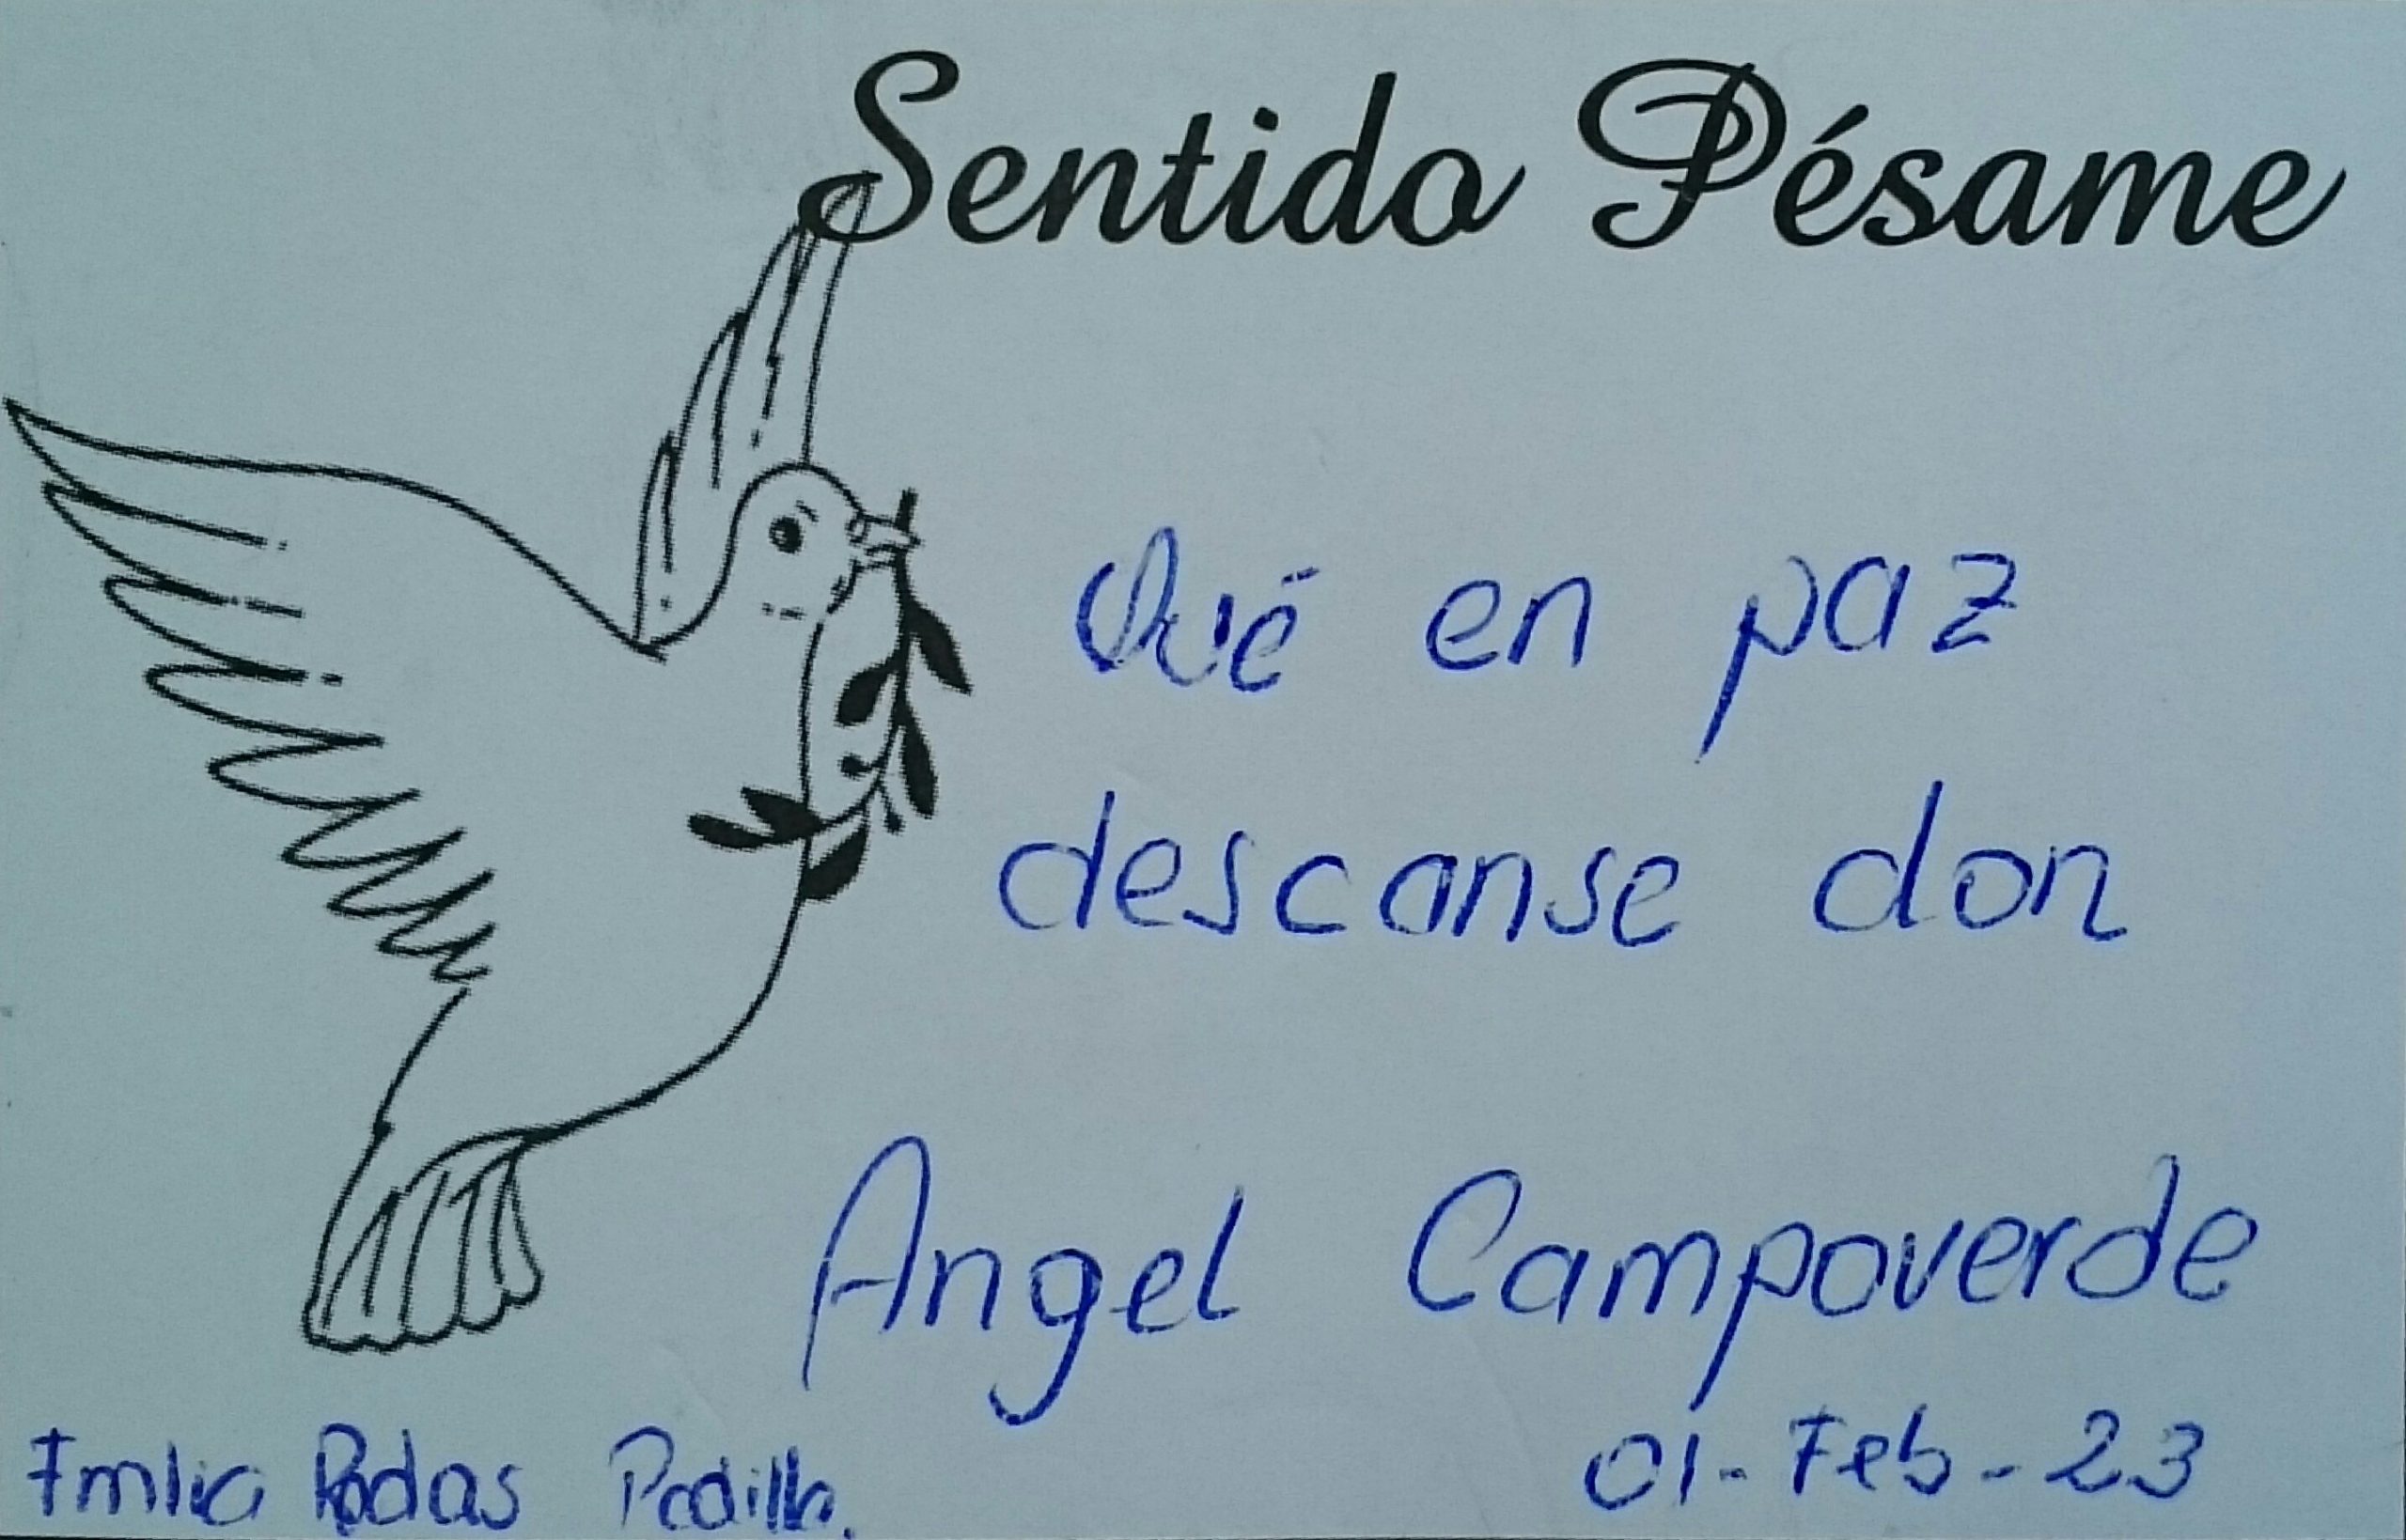 Sentido Pésame
Qué en paz
descanse don
Angel Campoverde
01-Feb-23
Emilia Rodas Padilla.